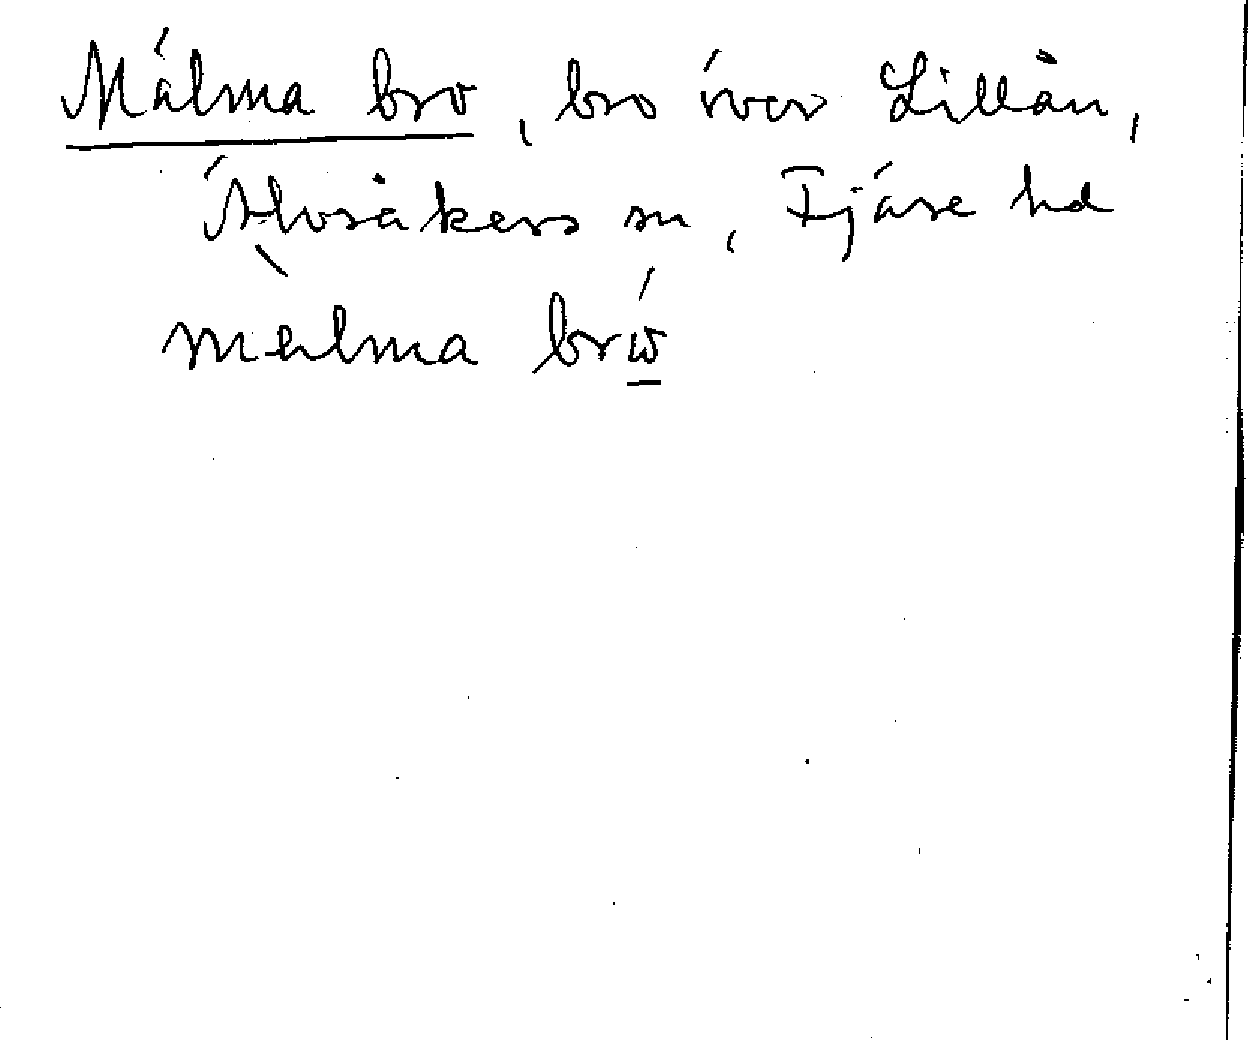 Målma bro, bro över Lillån,
Älvsåkers sn, Fjäre hd
mɛlma brώ̲